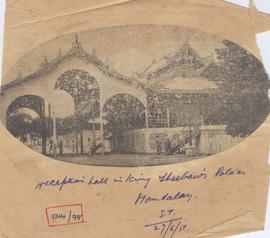 reception hall in King Theebaw's Palace
Mandalay.
S.T.
27/6/18
1314/98